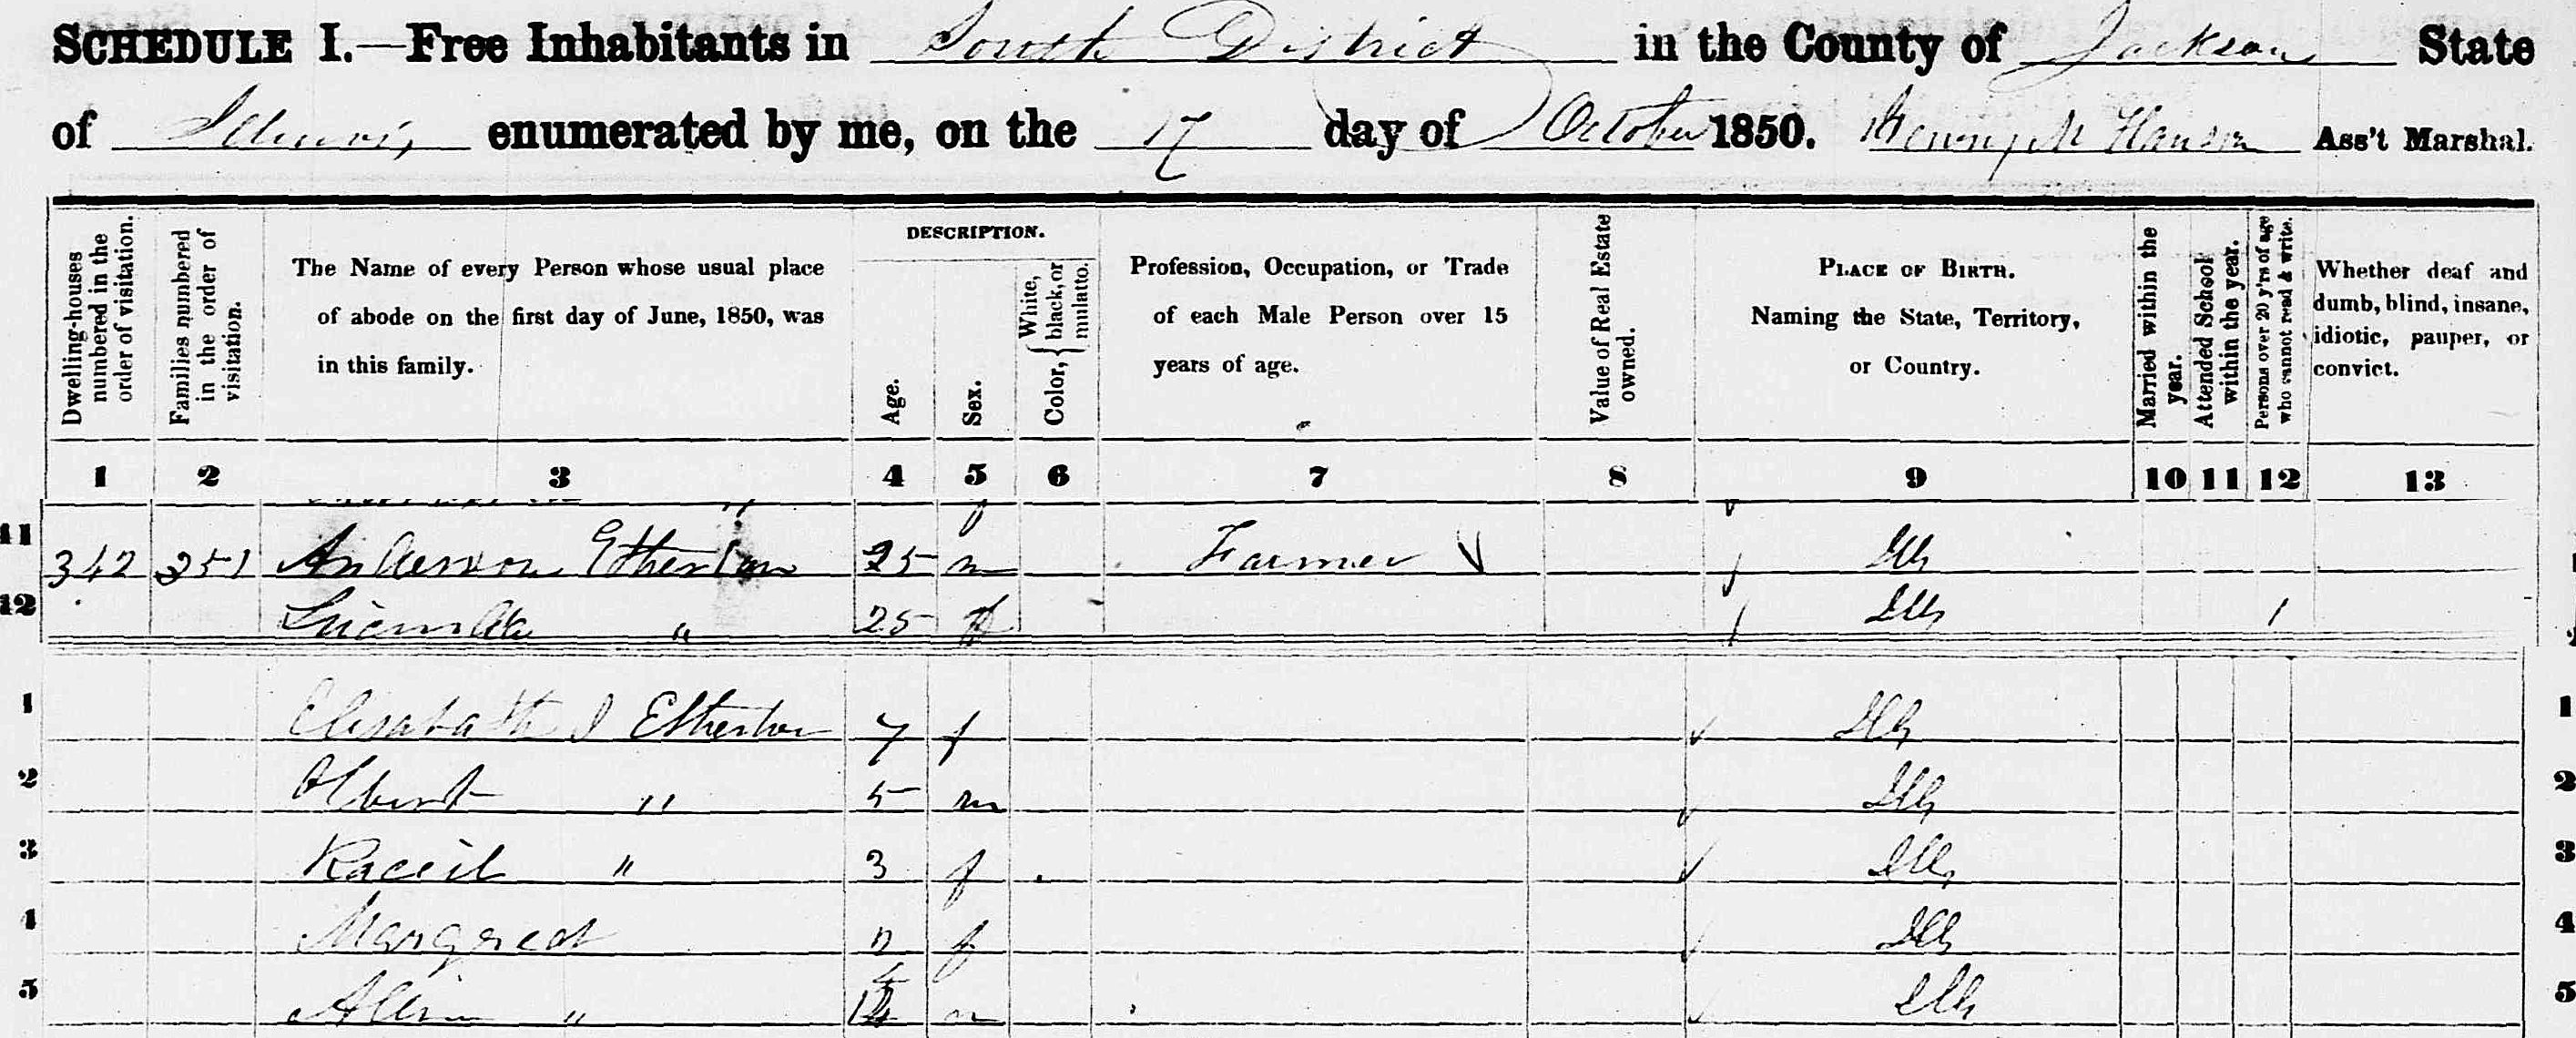 SCHEDULE I.—Free Inhabitants in South District in the County of Jackson State
of Illinois enumerated by me, on the 17 day of October 1850. Henry M Hanson Ass't Marshal.
Dwelling-houses numbered in the order of visitation.
Families numbered in the order of visitation.
The Name of every Person whose usual place
of abode on the first day of June, 1850, was
in this family.
DESCRIPTION.
Age.
Sex.
Color, { White, black, or mulatto.
Profession, Occupation, or Trade
of each Male Person over 15
years of age.
Value of Real Estate owned.
PLACE OF BIRTH.
Naming the State, Territory,
or Country.
Married within the year.
Attended School within the year.
Persons over 20 y'rs of age who cannot read & write.
Whether deaf and
dumb, blind, insane,
idiotic, pauper, or
convict.
1 2 3 4 5 6 7 8 9 10 11 12 13
11 342 251 Anderson Etherton 25 m Farmer Ills
12 Lucinda " 25 f Ills 1
1 Elisabath J Etherton 7 f Ills 1
2 Albert " 5 m Ills 2
3 Raceil " 3 f Ills 3
4 Margreat 2 f Ills 4
5 Allin " m Ills 5